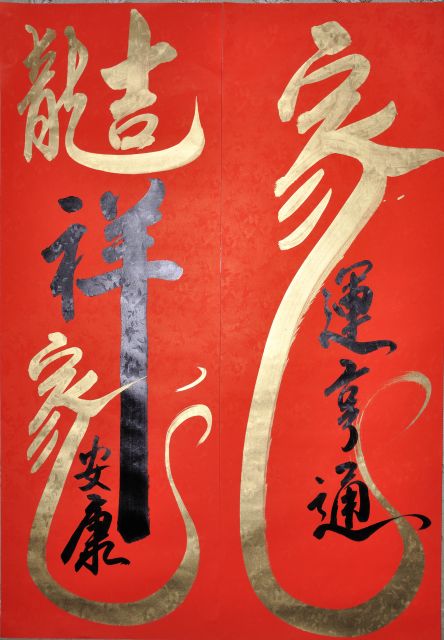 家運亨通
龍吉祥
家安康